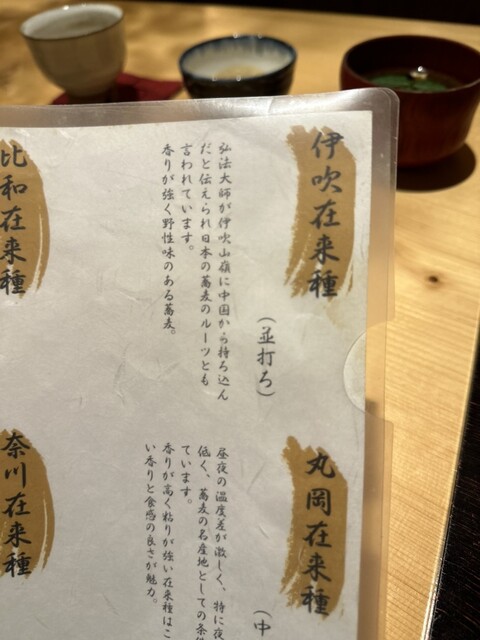 伊吹在来種
(並打ち)
弘法大師が伊吹山嶺に中国から持ち込ん
だと伝えられ日本の蕎麦のルーツとも
言われています。
香りが強く野性味のある蕎麦。
比和在来種
丸岡在来種
(中
昼夜の温度差が激しく、特に夜
低く、蕎麦の名産地としての条
ています。
香りが高く粘りが強い在来種はこ
い香りと食感の良さが魅力。
奈川在来種